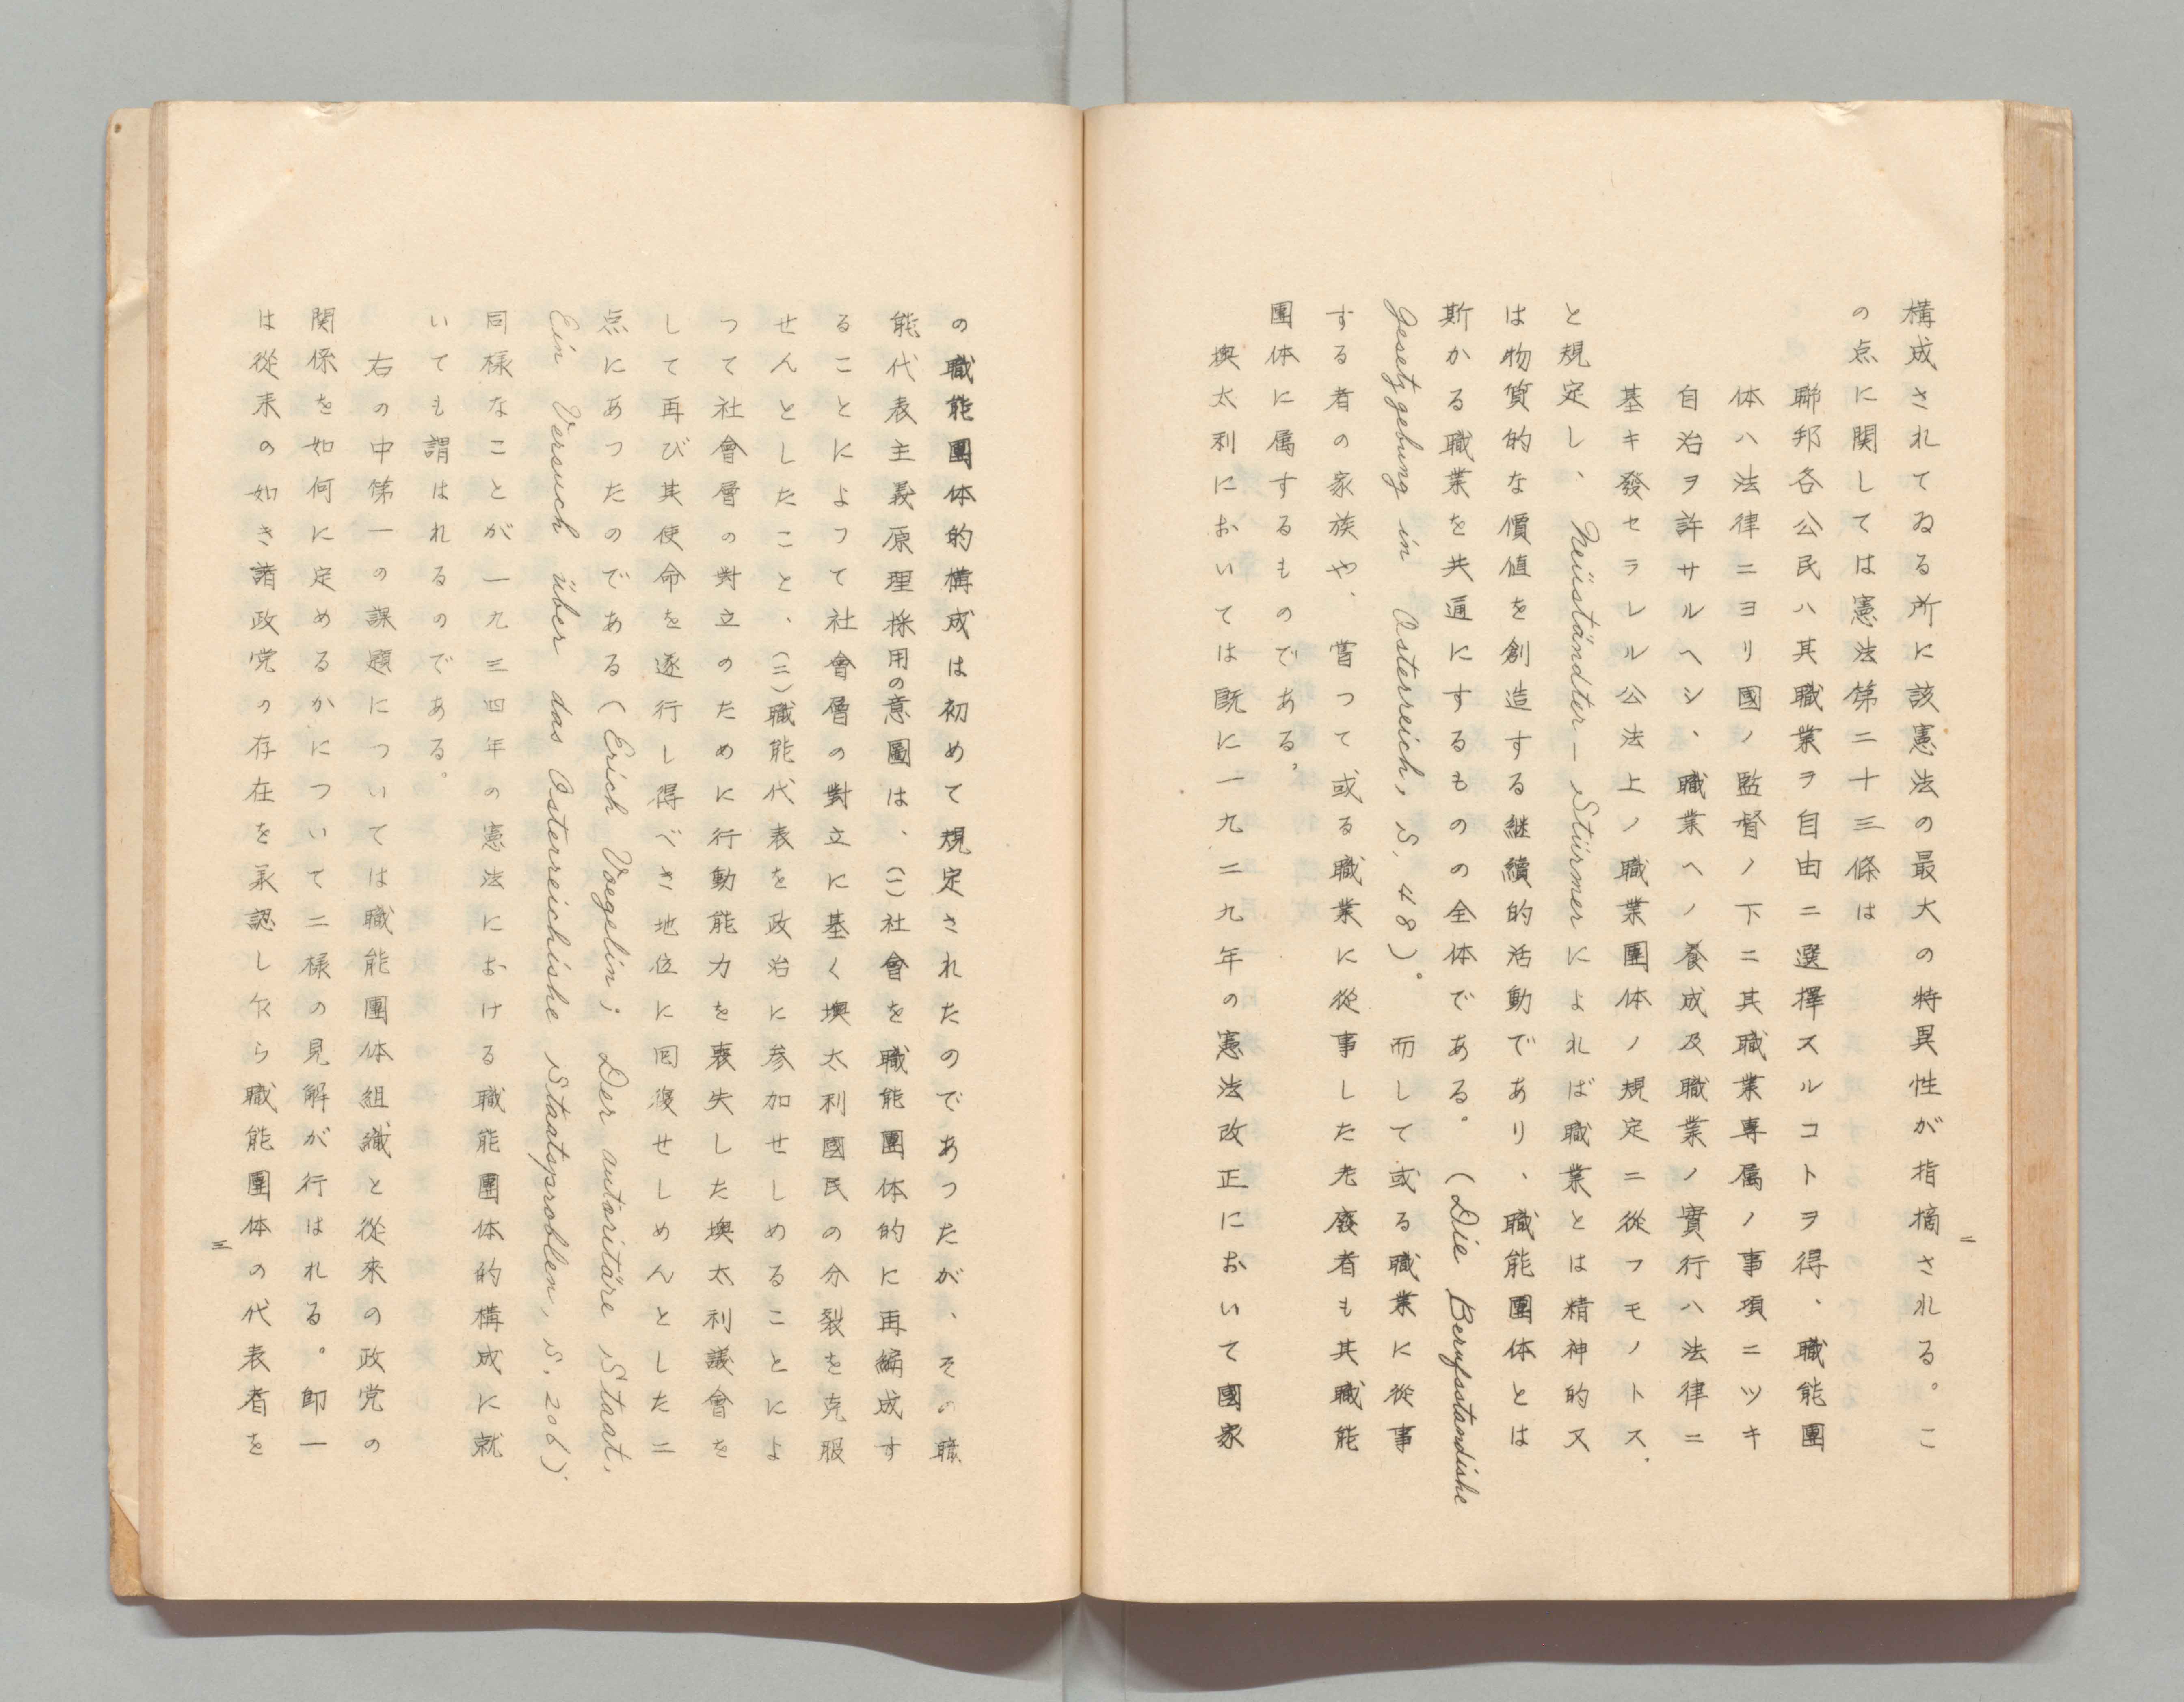 構成されてゐる所に該憲法の最大の特異性が指摘される。こ
の点に関しては憲法第二十三條は
聯邦各公民ハ其職業ヲ自由ニ選擇スルコトヲ得、職能團
体ハ法律ニヨリ國ノ監督ノ下ニ其職業專属ノ事項ニツキ
自治ヲ許サルヘシ、職業ヘノ養成及職業ノ實行ハ法律ニ
基キ發セラレル公法上ノ職業團体ノ規定ニ從フモノトス.
と規定し、Neüständter—Stürmerによれば職業とは精神的又
は物質的な價値を創造する継續的活動であり、職能團体とは
斯かる職業を共通にするものの全体である。(Die Berufsständishe
Gesetzgebung in Österreich, S. 48)。而して或る職業に從事
する者の家族や、嘗つて或る職業に從事した老廢者も其職能
團体に属するものである。
墺太利においては既に一九二九年の憲法改正において國家
二
の職能團体的構成は初めて規定されたのであつたが、その職
能代表主義原理採用の意圖は、(一)社會を職能團体的に再編成す
ることによつて社會層の對立に基く墺太利國民の分裂を克服
せんとしたこと、(二)職能代表を政治に参加せしめることによ
つて社會層の對立のために行動能力を喪失した墺太利議會を
して再び其使命を遂行し得べき地位に囘復せしめんとした二
点にあつたのである(Erich Voegelin; Der autoritäre Staat,
Ein Versuch über das Österreichishe Staatsproblem, S. 206)
同様なことが一九三四年の憲法における職能團体的構成に就
いても謂はれるのである。
右の中第一の課題については職能團体組織と從來の政党の
関係を如何に定めるかについて二様の見解が行はれる。卽一
は從来の如き諸政党の存在を承認し乍ら職能團体の代表者を
三